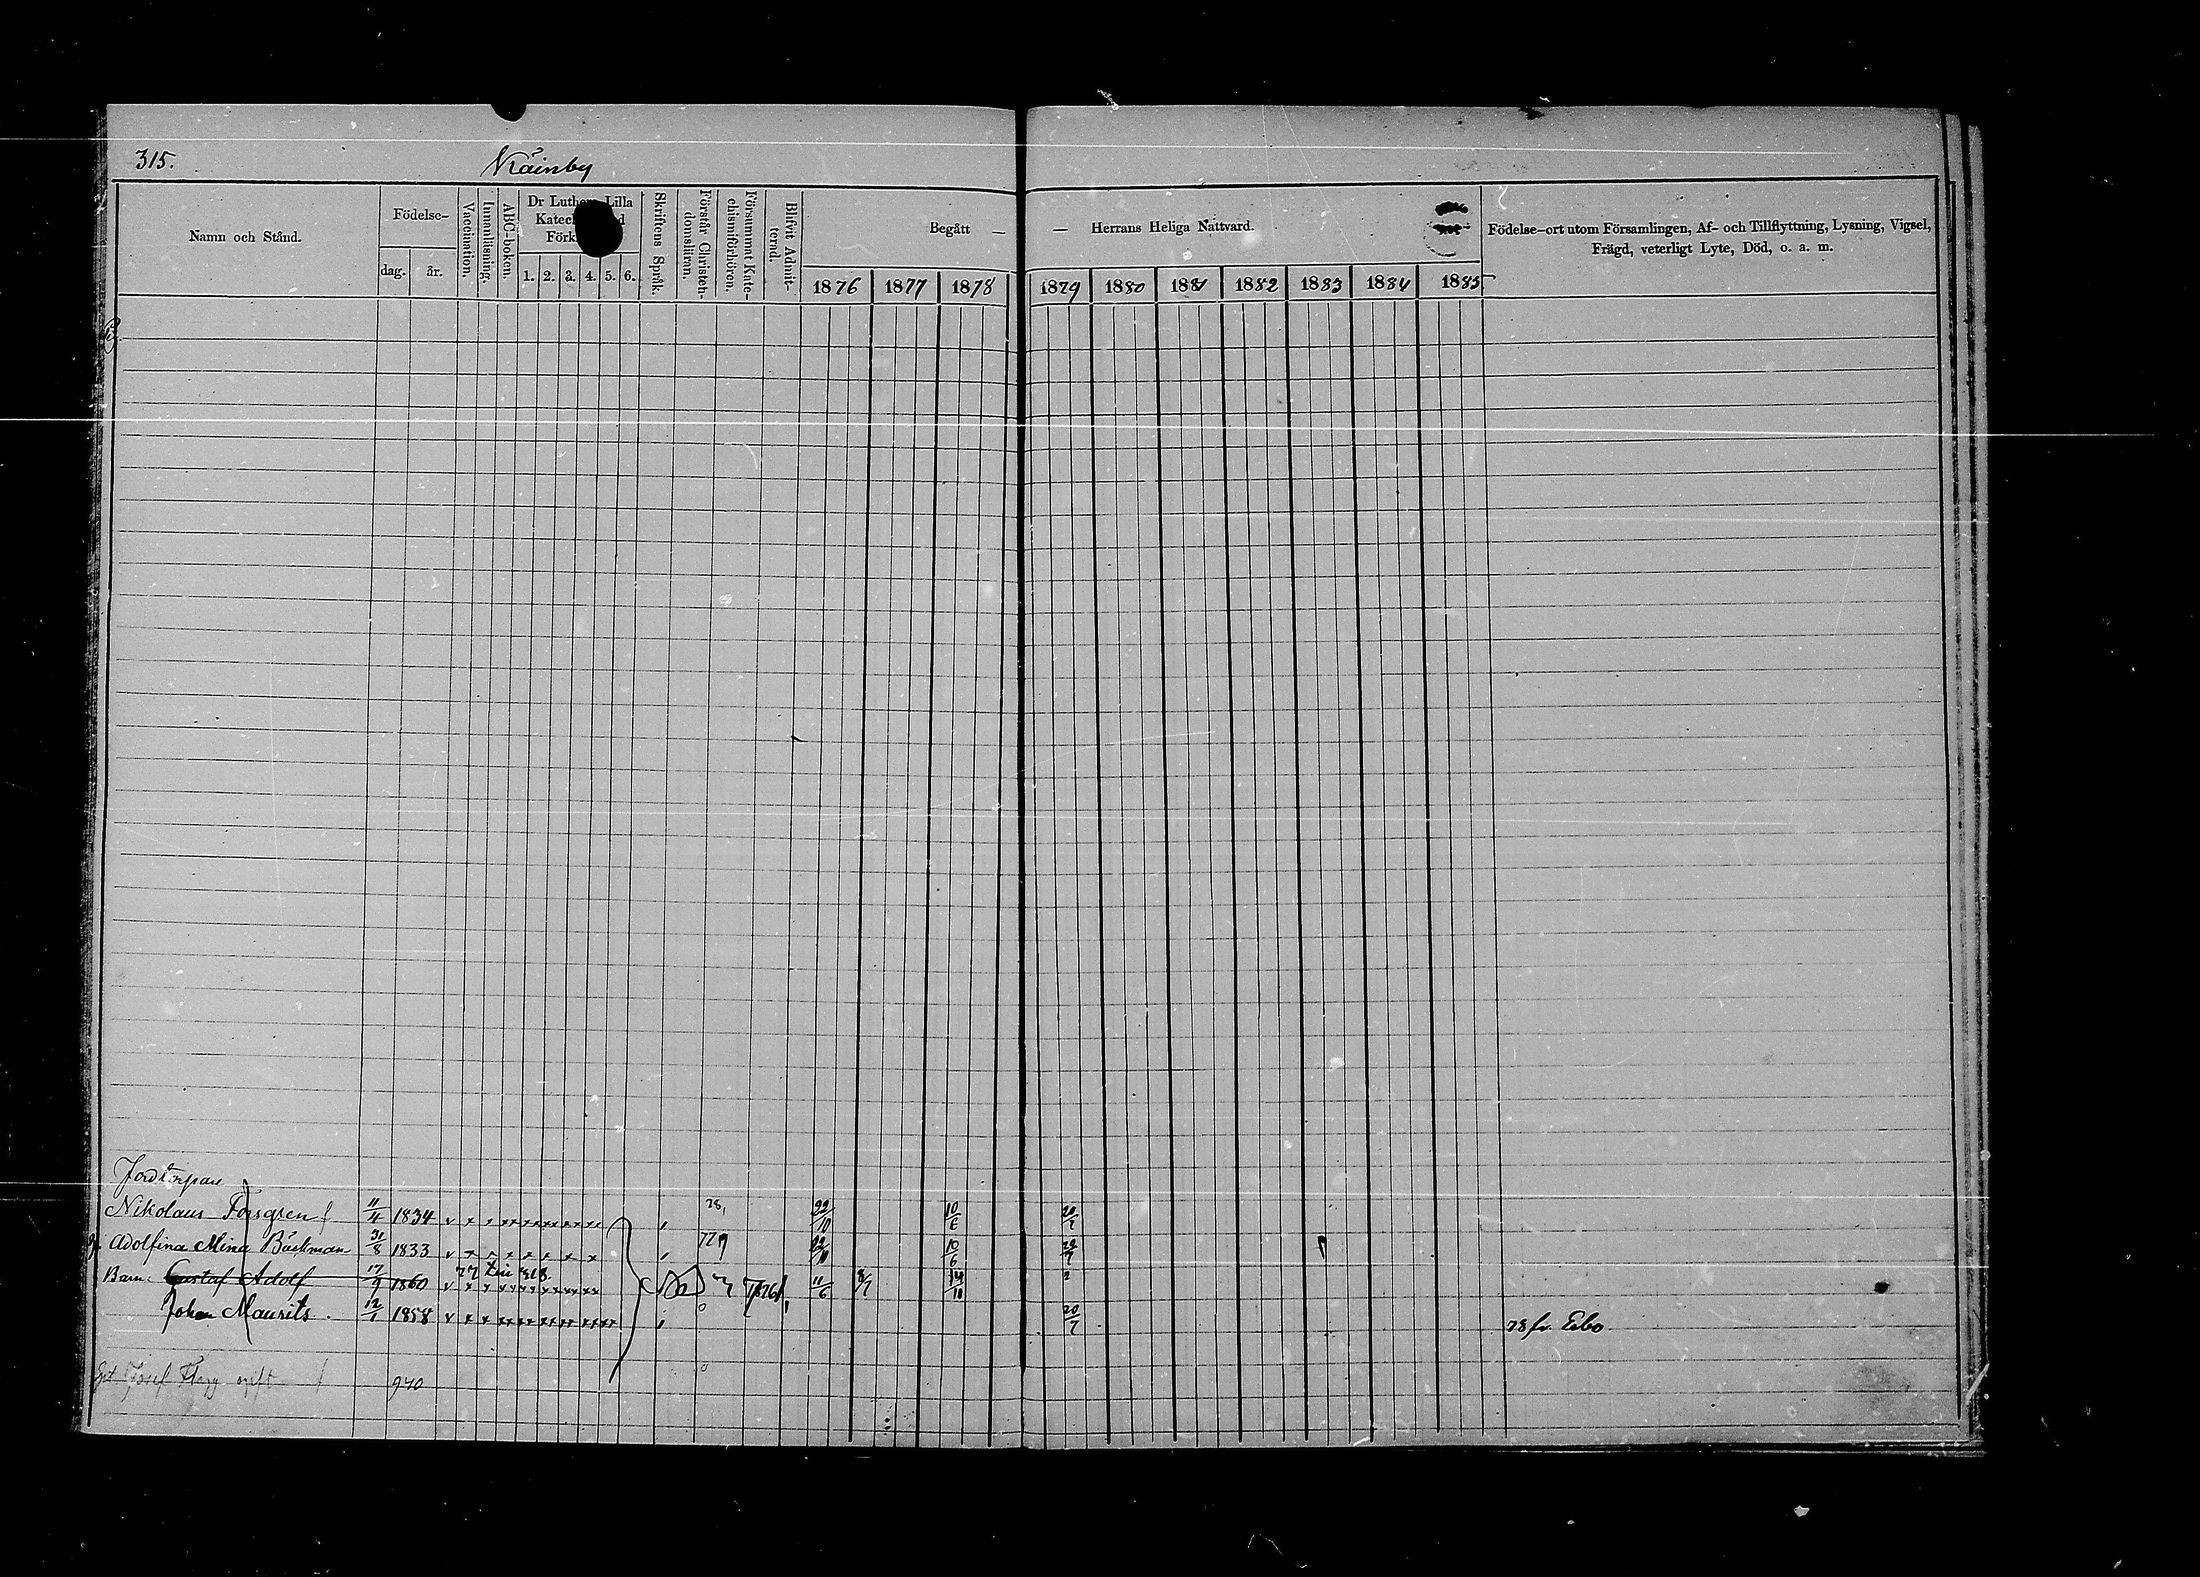 315. Käinby
Namn och Stånd.
Födelse-
dag. år.
Vaccination.
Innanläsning.
ABC-boken.
Dr Luthers Lilla
1. 2. 3. 4. 5. 6.
Skriftens Språk.
Förstår Christen-
domsläran.
Försummat Kate-
chismiförhören.
Blifvit Admit-
terad.
Begått — — Herrans Heliga Nattvard.
1876 1877 1878 1879 1880 1881 1882 1883 1884 1885
Födelse-ort utom Församlingen, Af- och Tillflyttning, Lysning, Vigsel,
Frägd, veterligt Lyte, Död, o. a. m.
Jordtorpare
Nikolaus Forsgren 11/4 1834 v x x x x x x x x 78, 22/10 10/6 20/7
Adolfina Mina Bäckman 31/8 1833 v x x x x x x x 77 22/10 10/6 20/7
Barn. Gustaf Adolf 17/9 1860 77 11/6 8/7 14/10
Johan Maurits 12/1 1858 20/7 78 fr. Esbo
Josef 940